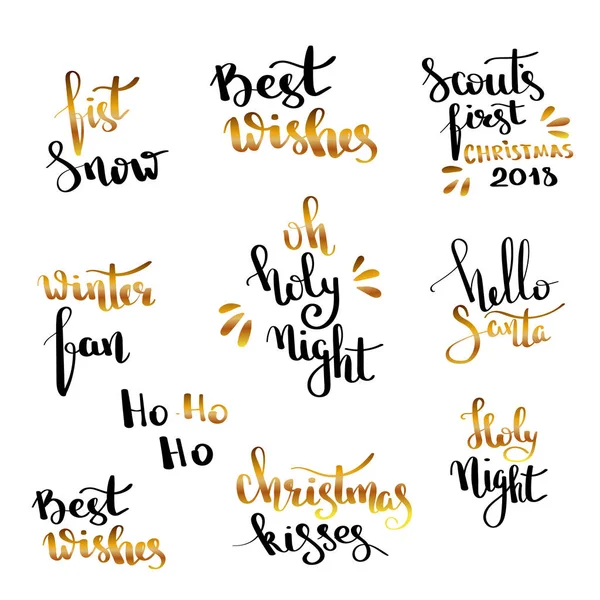 fist
Snow
Best
Wishes
Scout's
first
CHRISTMAS
2018
winter
fan
oh
holy
Night
hello
Santa
Ho-Ho
Ho
Holy
Night
Best
Wishes
christmas
kisses